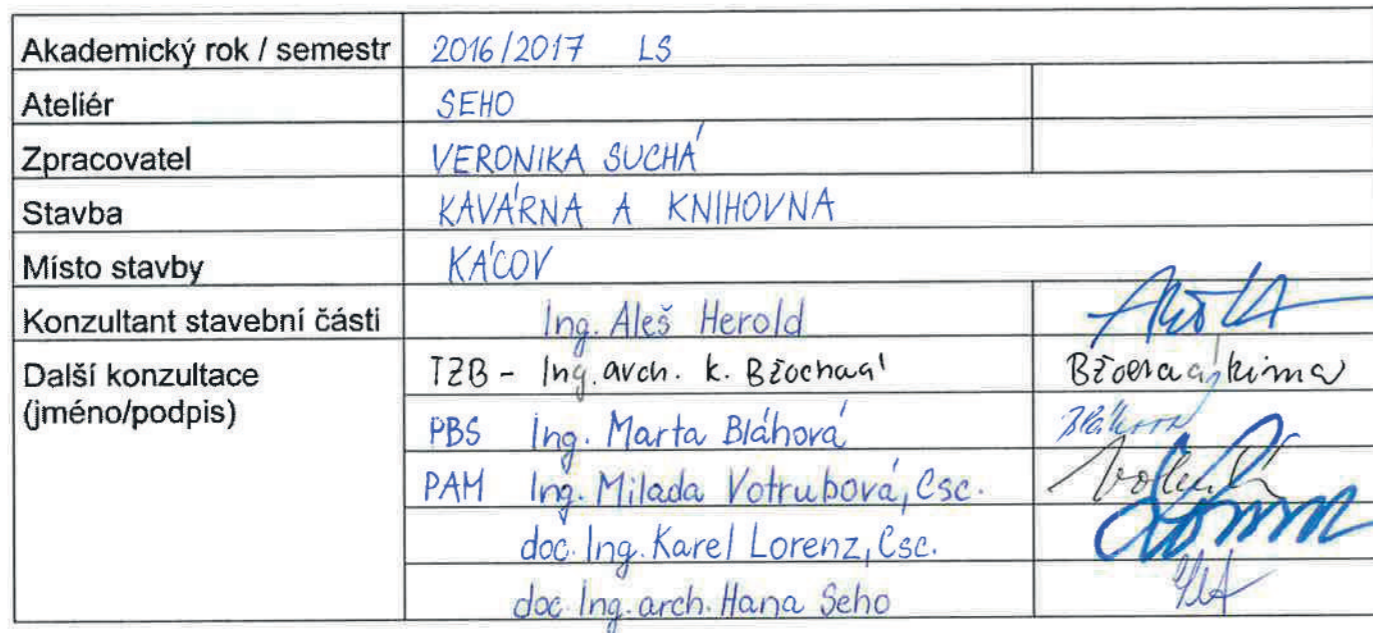 Akademický rok / semestr 2016/2017 LS
Ateliér SEHO
Zpracovatel VERONIKA SUCHÁ
Stavba KAVÁRNA A KNIHOVNA
Místo stavby KÁCOV
Konzultant stavební části Ing. Aleš Herold
Další konzultace TZB - Ing. arch. K.
(jméno/podpis)
PBS Ing. Marta Bláhová
PAM Ing. Milada Votrubová, Csc.
doc. Ing. Karel Lorenz, Csc.
doc. Ing. arch. Hana Seho